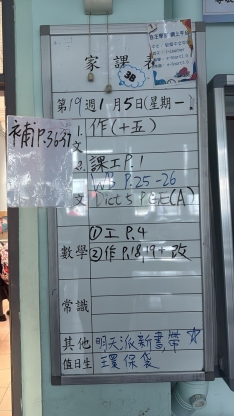 家課表
3B
第19週1月5日(星期一)
補P.36-37
1. 作(十五)
文
2. 課工P.1
WB P.25-26
文 Dict 5 P.E(A)
①工P.4
數學 ②作P.18,19+改
常識
其他 明天派新書，帶
值日生 環保袋